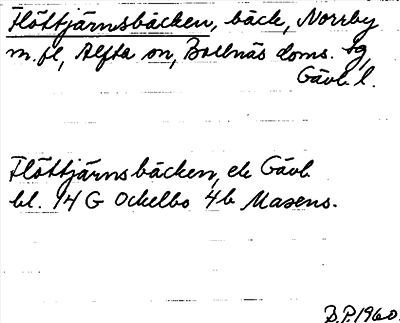 Flöttjärnsbäcken, bäck, Norrby
m.fl, Alfta sn, Bollnäs doms. tg,
Gävl. l.
Flöttjärnsbäcken, ek Gävl
bl. 14 G Ockelbo 4b Masens.
B.P. 1960.